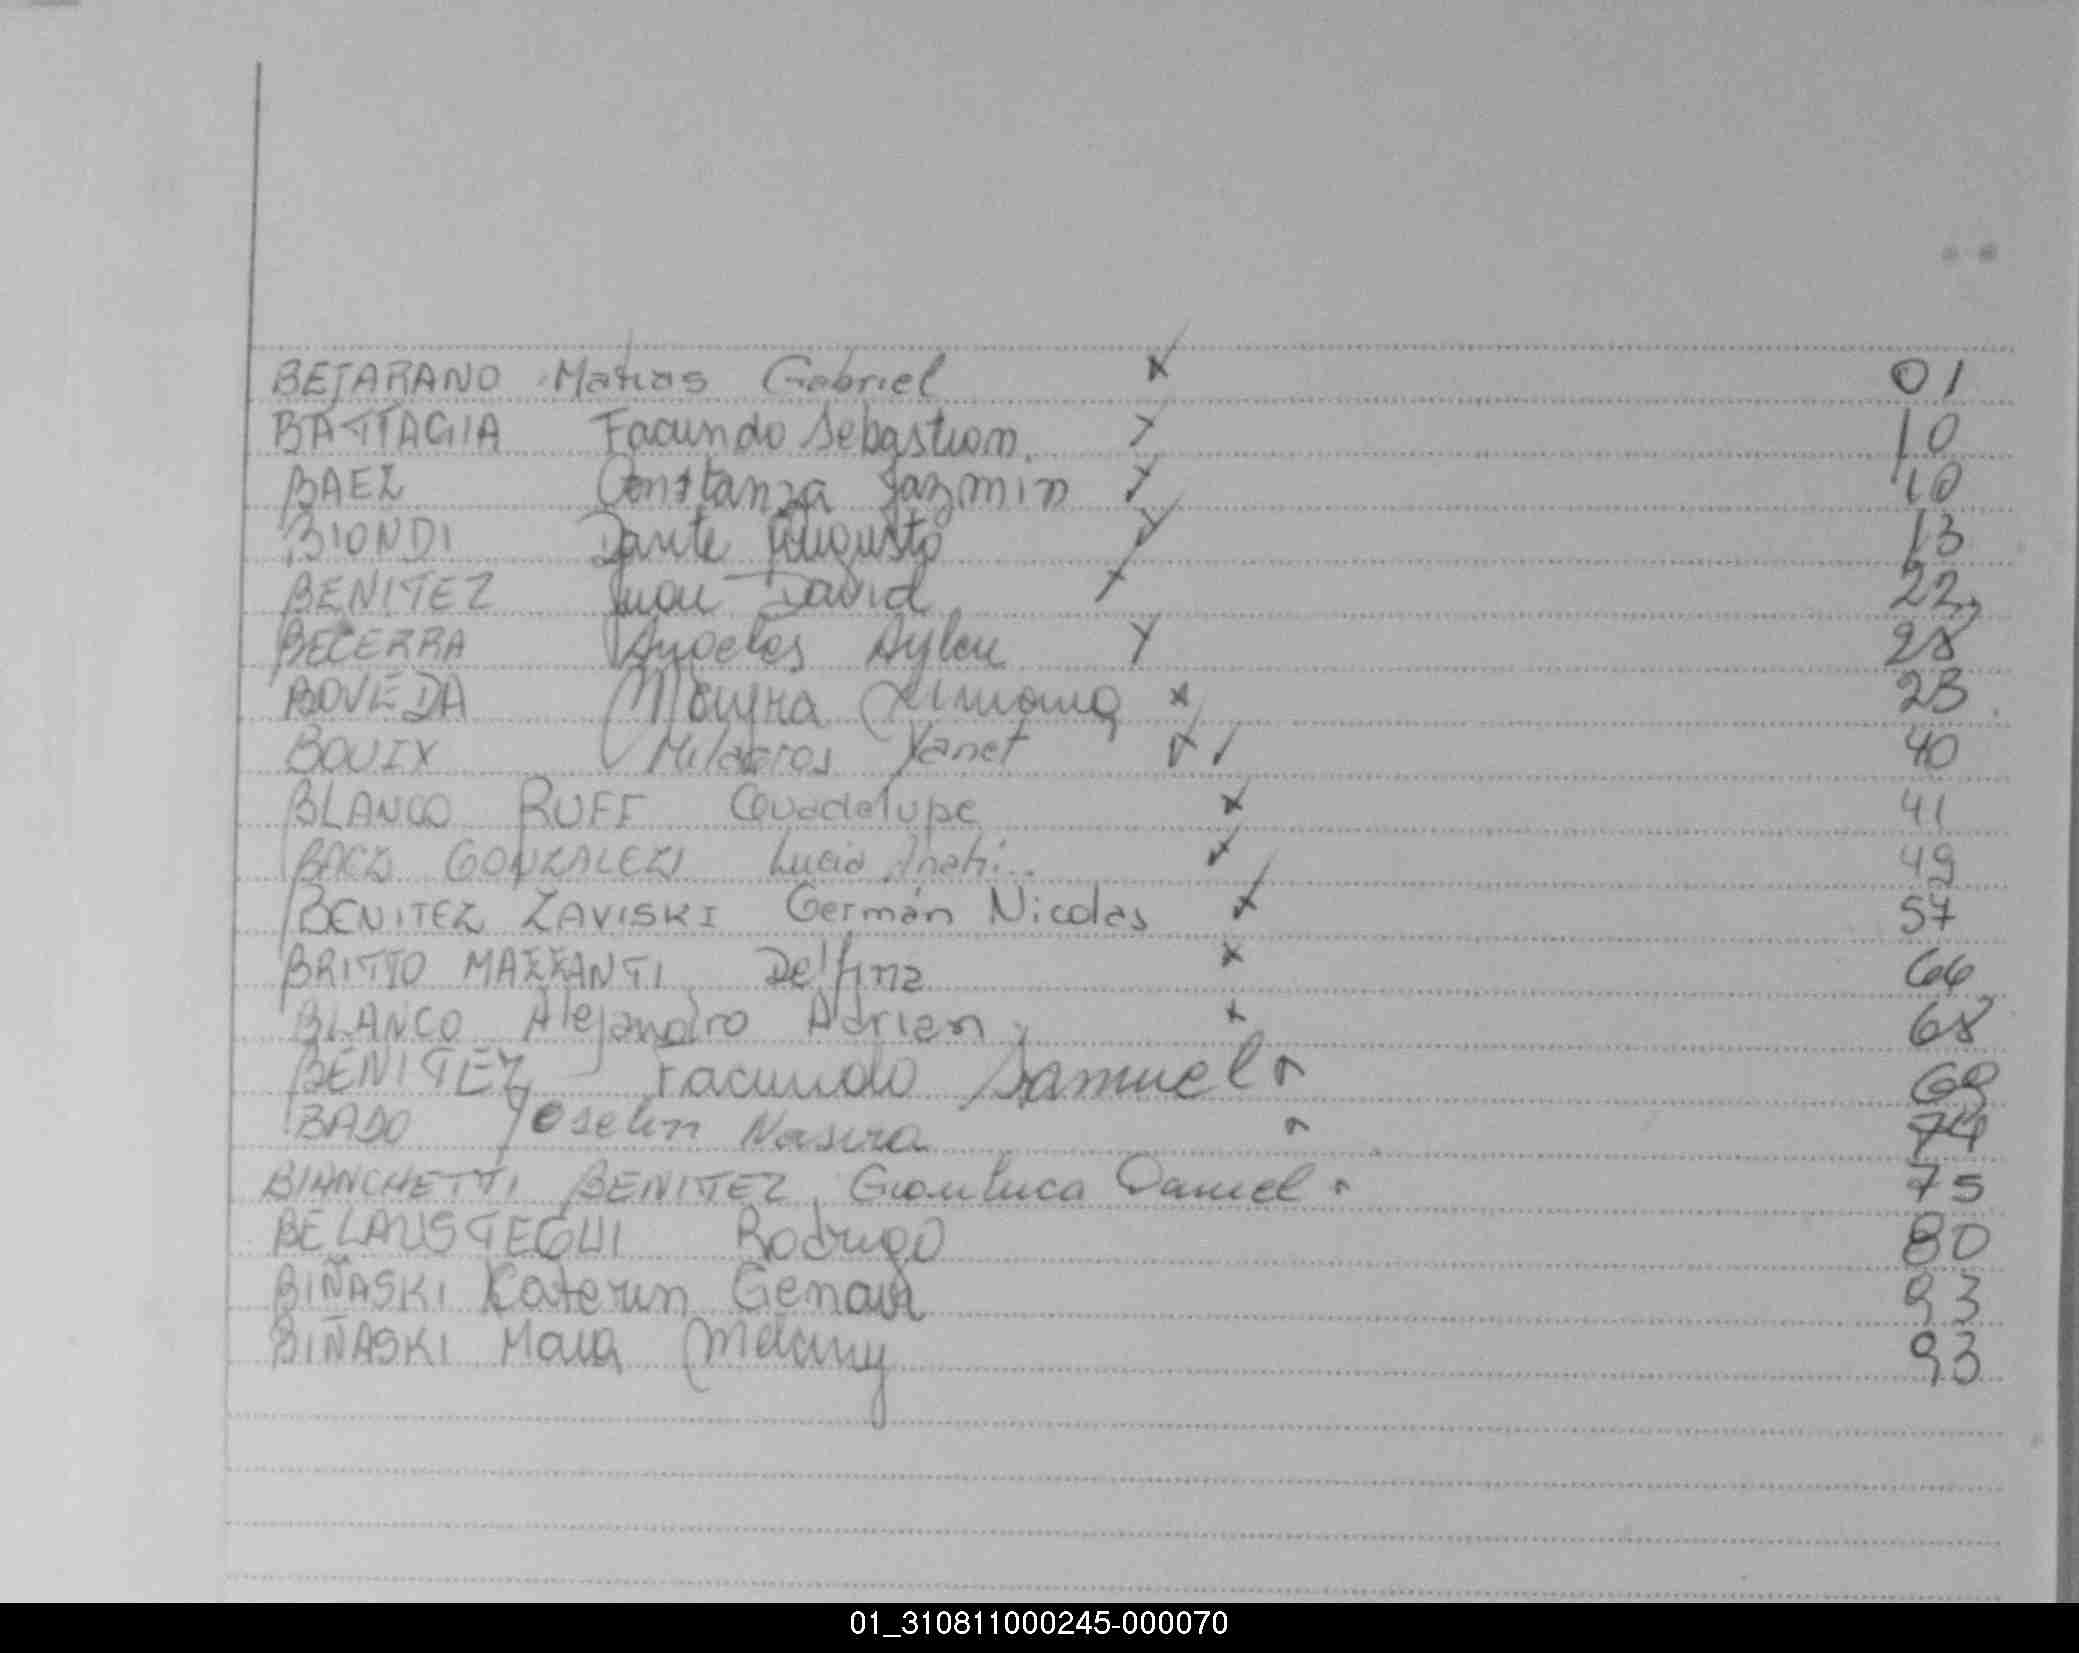 BEJARANO Matias Gabriel 01
BATTAGIA Facundo Sebastian 10
BAEZ Constanza Jazmin 10
BIONDI Dante Augusto 13
BENITEZ Juan David 22
BECERRA Angeles Aylen 28
BOVEDA Mayra 23
BOUIX Milagros Yanet 40
BLANCO RUFF Guadalupe 41
BAEZ GONZALEZ Lucia Anahi 49
BENITEZ ZAVISKI Germán Nicolas 57
BRITTO MAZZANTI Delfina 66
BLANCO Alejandro Adrian 68
BENITEZ Facundo Samuel 69
BADO Joselin Nasira 74
BIANCHETTI BENITEZ Gianluca Daniel 75
BELAUSTEGUI Rodrigo 80
BIÑASKI Katerin 93
BIÑASKI Maia Melany 93
01_310811000245-000070